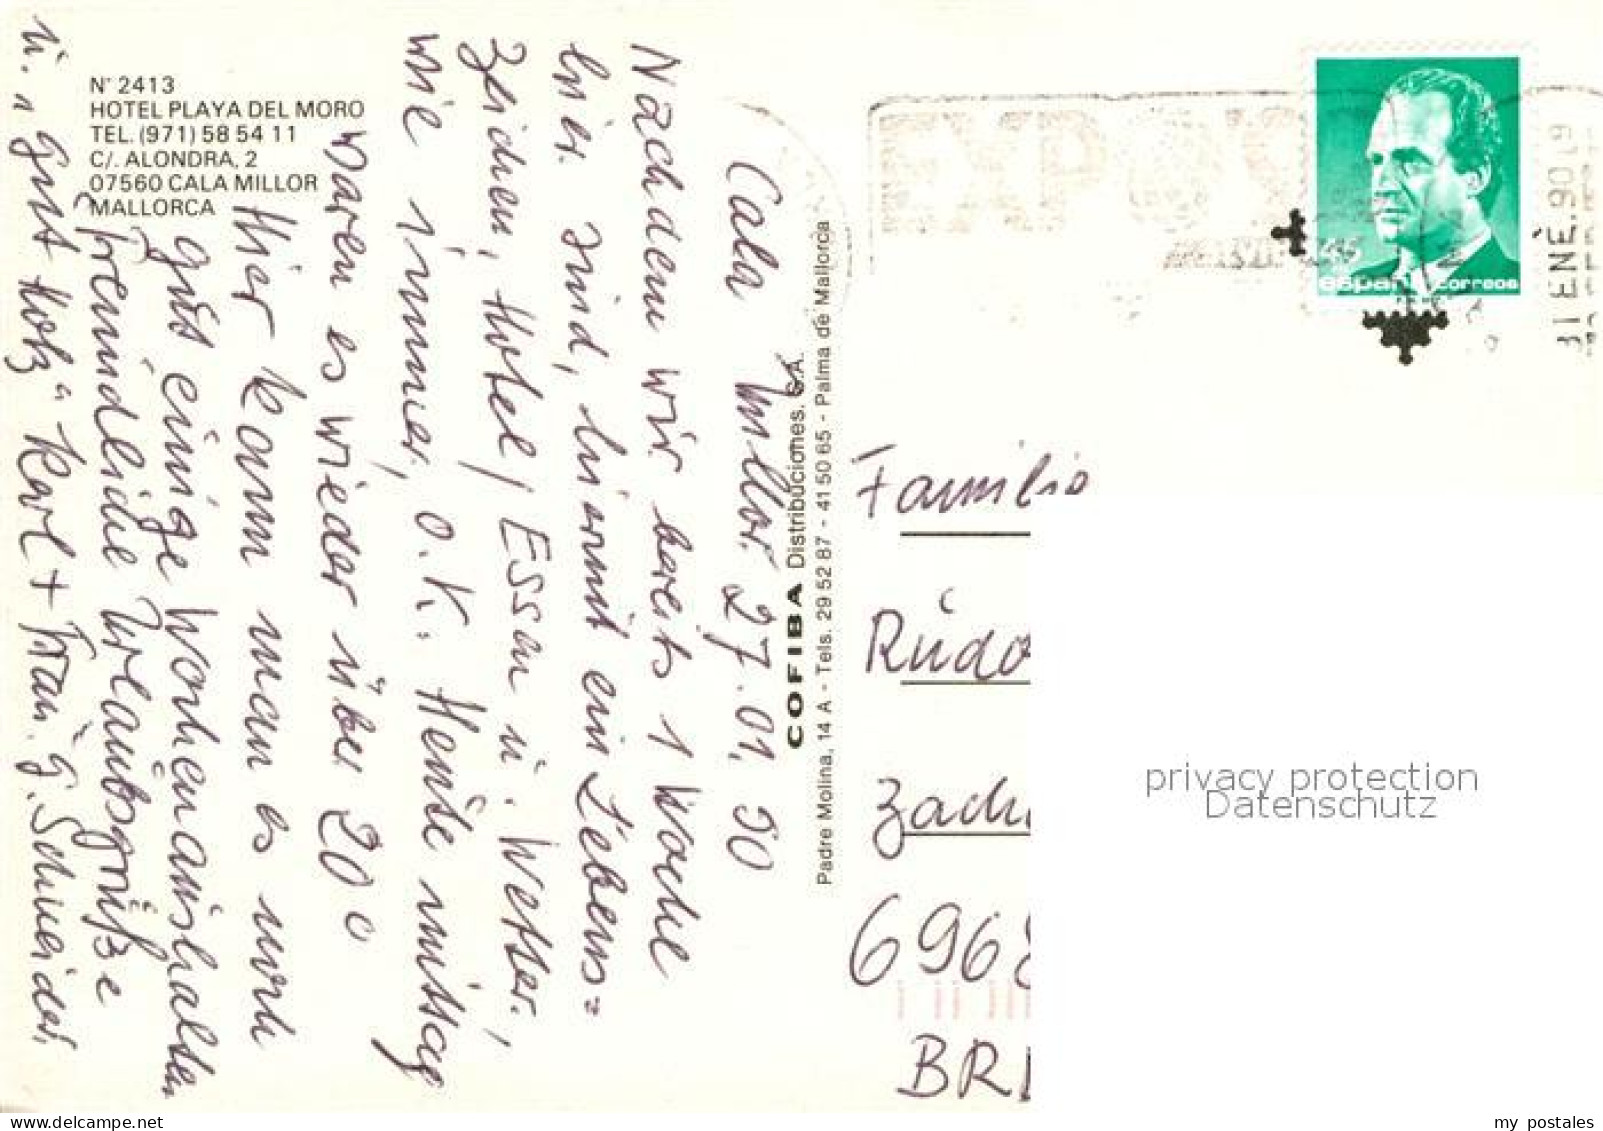 N° 2413
HOTEL PLAYA DEL MORO
TEL. (971) 58 54 11
C/. ALONDRA, 2
07560 CALA MILLOR
MALLORCA
Cala Millor 27.01.90
Nachdem wir bereits 1 Woche
hier sind, hiermit ein Lebens=
zeichen, Hotel, Essen u. Wetter,
wie immer, o.k. Heute mittag
waren es wieder über 20°
Hier kann man es noch
gut einige Wochen aushalten
Freundliche Urlaubsgrüße
u. "gut Holz" Karl + Frau G. Schneider
COFIBA Distribuciones, S.A.
Padre Molina, 14 A - Tels. 29 52 87 - 41 50 65 - Palma de Mallorca
EXPO
31 ENE. 90 19
España correos
Familie
Rudo
Zach
6968
BR
privacy protection
Datenschutz
my postales